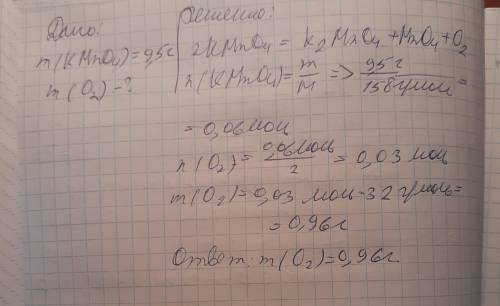 Дано:
m(KMnO4)=9,5г
m(O2)-?
Решение:
2KMnO4=K2MnO4+MnO4+O2
n(KMnO4)=m/M=>9,5г/158г/моль=
=0,06моль
n(O2)=0,06моль/2=0,03моль
m(O2)=0,03моль·32г/моль=
=0,96г
Ответ: m(O2)=0,96г.